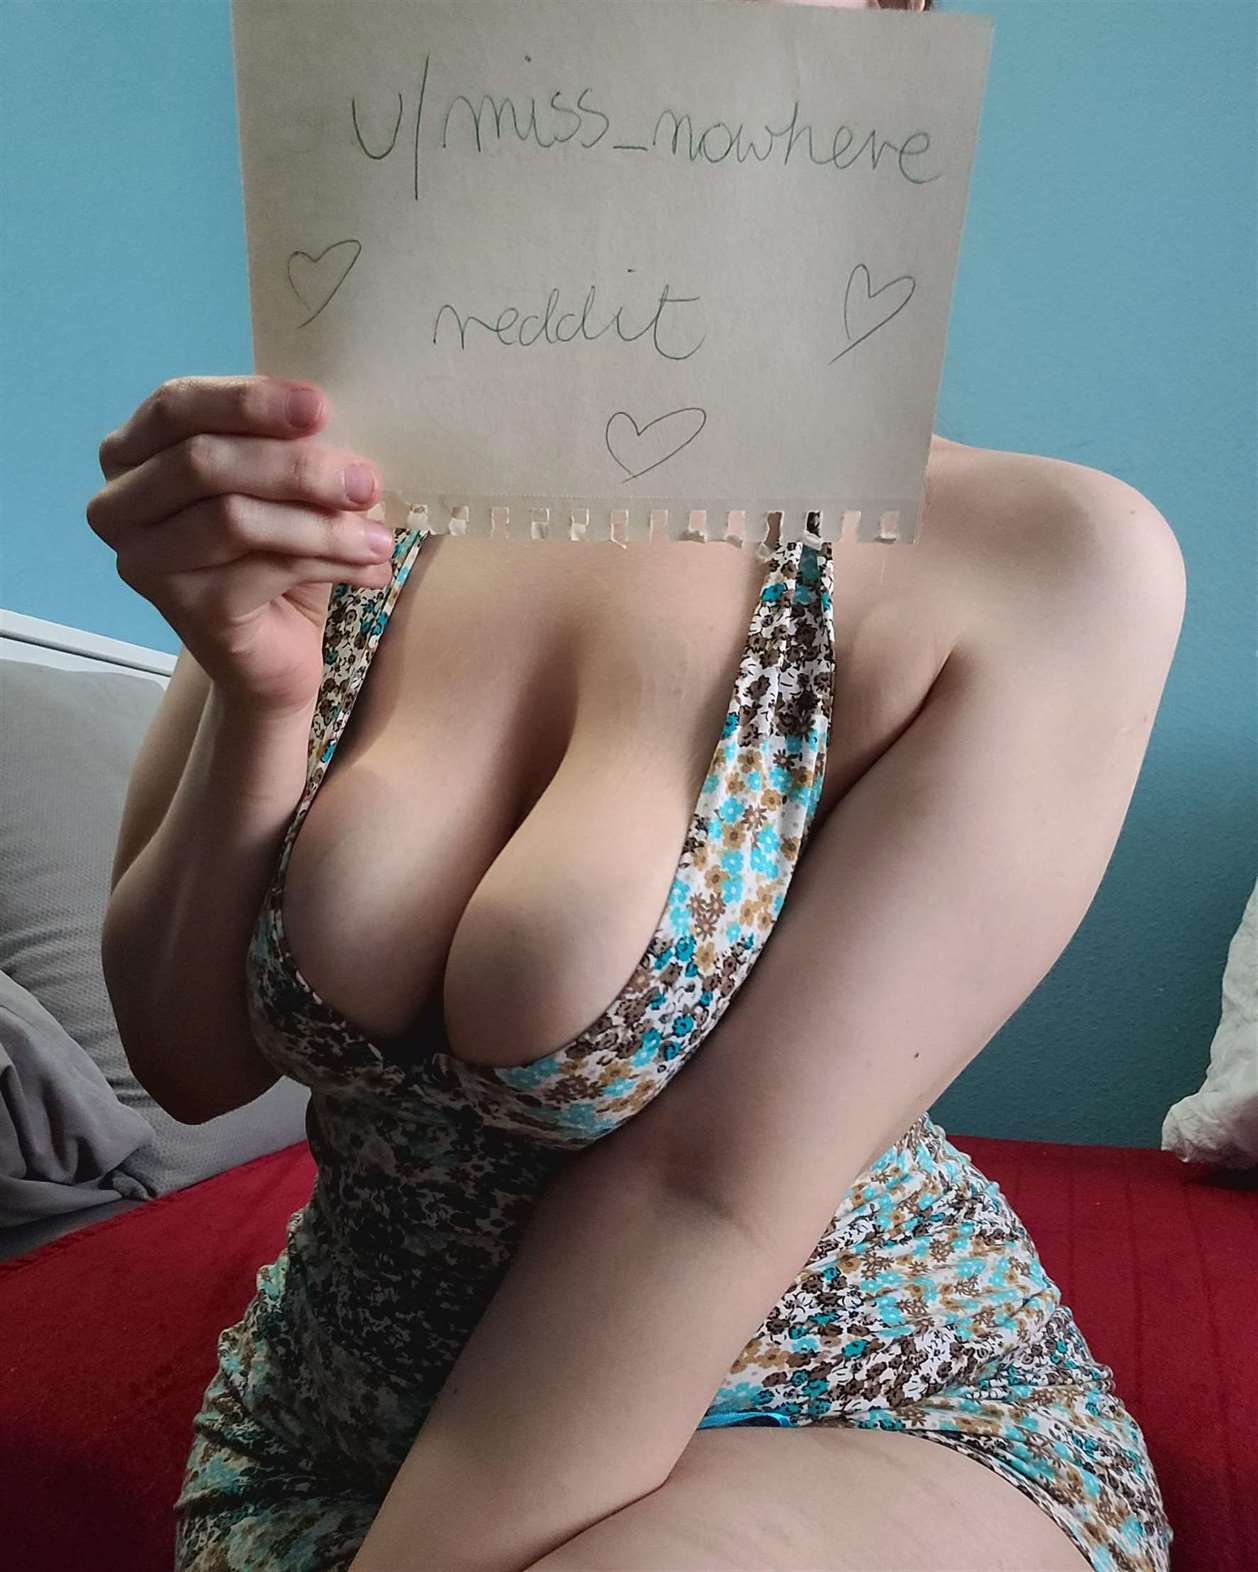 u/miss_nowhere
reddit